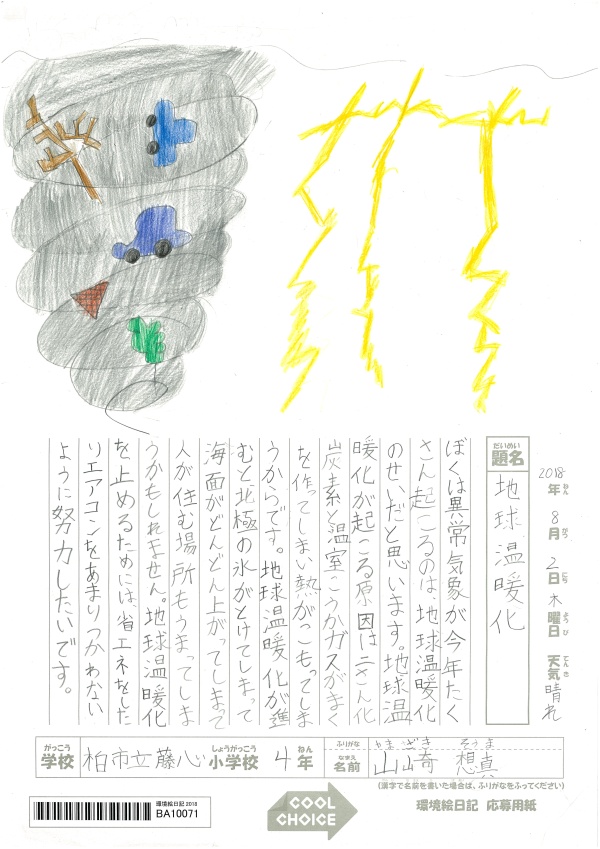 2018年ねん 8月がつ 2日にち 木曜日ようび 天気てんき 晴れ
だいめい
題名
地球温暖化
ぼくは異常気象が今年たく
さん起こるのは、地球温暖化
のせいだと思います。地球温
暖化が起こる原因は二さん化
炭素と温室こうかガスがまく
を作ってしまい熱がこもってしま
うからです。地球温暖化が進
むと北極の氷がとけてしまって
海面がどんどん上がってしまって
人が住む場所もうまってしま
うかもしれません。地球温暖化
を止めるためには、省エネをした
りエアコンをあまりつかわない
ように努力したいです。
がっこう
学校 柏市立藤心 小学校しょうがっこう 4年ねん
ふりがな やまざき そうま
なまえ
名前 山崎 想真
(漢字で名前を書いた場合は、ふりがなをふってください)
環境絵日記 2018
BA10071
COOL
CHOICE
環境絵日記 応募用紙